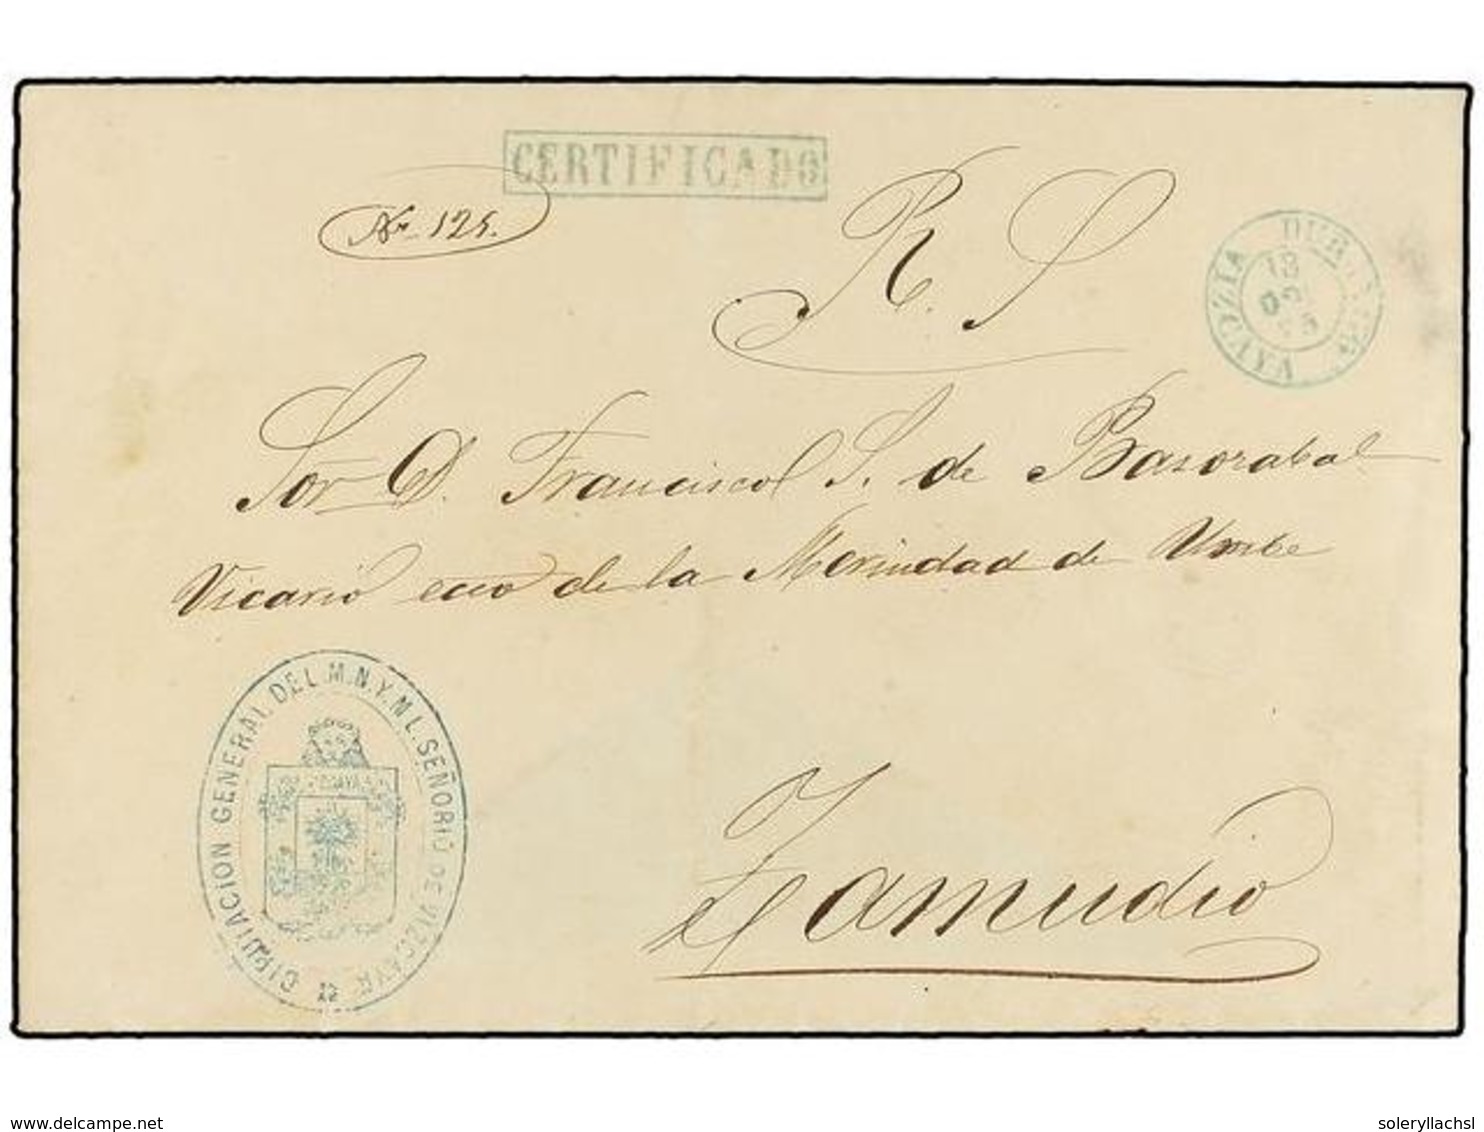 CERTIFICADO
Nº 125.
R. S
VIZCAYA
18
Sor D. Francisco S. de Basozabal
Vicario ecco de la Merindad de Uribe
DIPUTACION GENERAL DEL M.N.Y.M.L. SEÑORIO DE VIZCAYA
Zamudio
www.delcampe.net
soleryllachsl